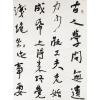 古人學問無遺
力少壯工夫老始
成紙上得來終覺
淺絕知此事要